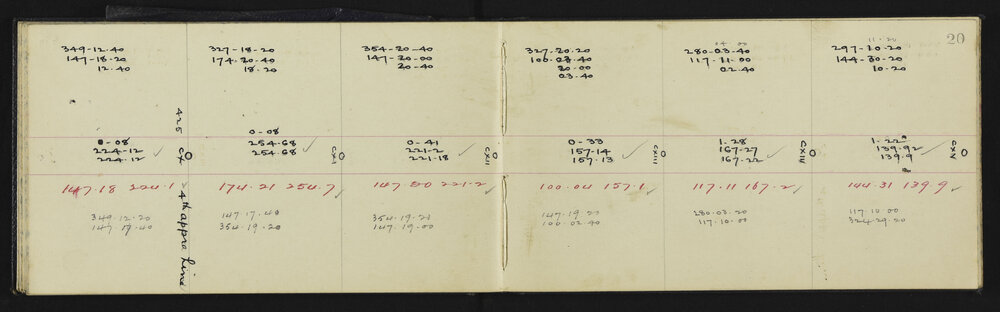 20
349-12-40
147-18-20
12.40
425
CX
0-08
224-12
224.12
147.18 224.1
349.12.20
147.17.40
4th appro Line
327-18-20
174-20-40
18-20
0-08
254-68
254.68
CXI
174.21 254.7
147.17.40
354.19.20
354-20-40
147-20-00
20-40
0-41
221-2
221-18
CXII
147.20 221.2
354.19.21
147.19.00
327.20.20
100.03.40
20-00
03.40
0-33
157-14
157.13
CXIII
100.04 157.1
147.19.20
100.02.40
04.00
280-03-40
117-11-00
02.40
1-28
167-27
167.22
CXIV
117.11 167.2
280.03.20
117.10.00
11.20
297-10-20
144-30-20
10.20
1-22
139.92
139.9
CXV
144.31 139.9
117.10.00
324.29.20